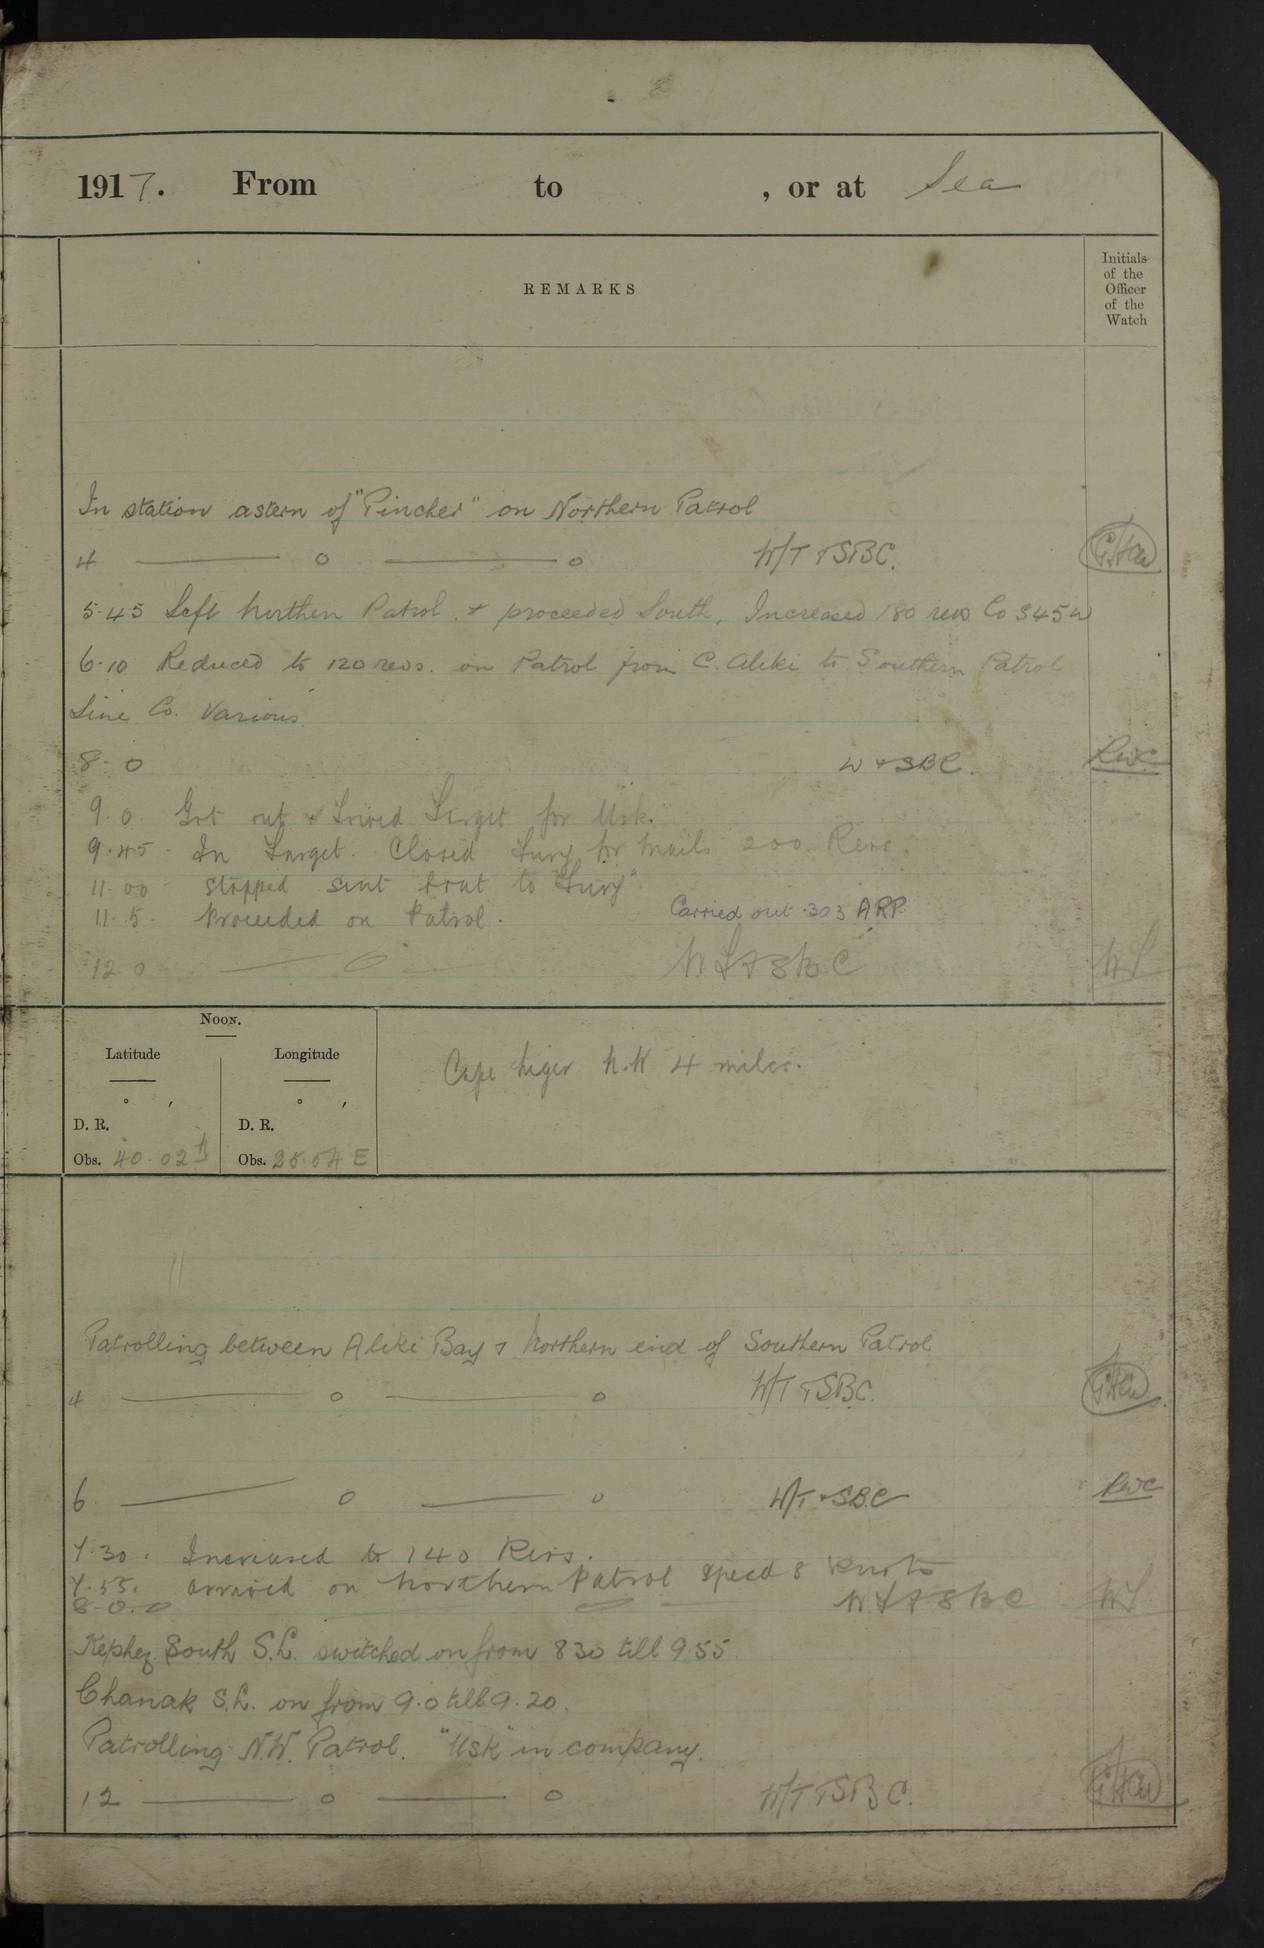 1917. From to , or at Sea
REMARKS
Initials
of the
Officer
of the
Watch
In station astern of "Pincher" on Northern Patrol
4 ——— o ——— o W/T & SBC.
5.45 Left Northern Patrol & proceeded South, Increased 180 revs Co S45W
6.10 Reduced to 120 revs. on Patrol from C. Aliki to Southern Patrol
Line Co. Various
8.0 W & SBC. RWC
9.0. Got out & Target for Usk.
9.45. In Target. Closed for Mails 200 Revs.
11.00 Stopped sent boat to
11.5. Proceeded on Patrol. Carried out .303 ARP.
12 0 —— o —— SBC
NOON.
Latitude Longitude
° ′ ° ′
D. R. D. R.
Obs. 40.02 N Obs. 25.54 E
Cape 4 miles.
Patrolling between Aliki Bay & Northern end of Southern Patrol
4 ——— o ——— o W/T & SBC.
6 ——— o ——— o W/T & SBC RWC
7.30. Increased to 140 Revs.
7.55. arrived on Northern Patrol speed 8 knots
8.0. SBC
Kephez South S.L. switched on from 830 till 9.55.
Chanak S.L. on from 9.0 till 9.20.
Patrolling N.W. Patrol. "Usk" in company.
12 ——— o ——— o W/T & SBC.